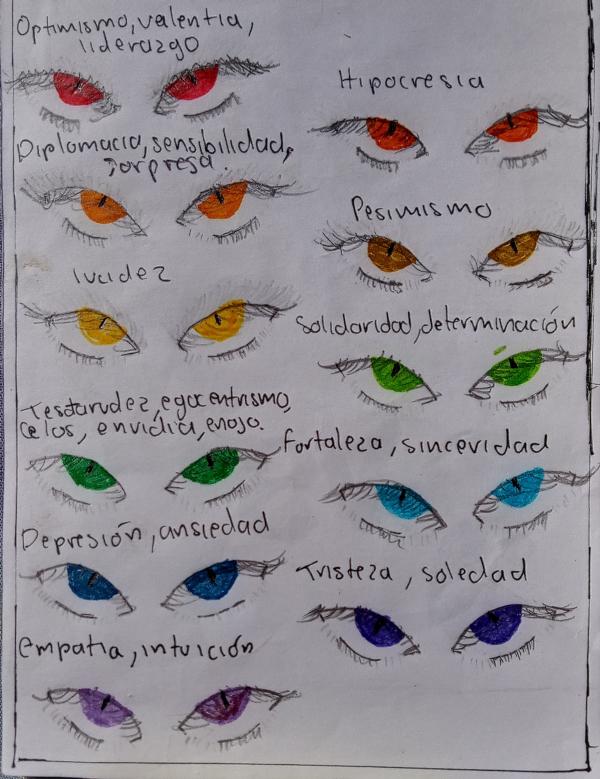 Optimismo, valentia,
liderazgo
Diplomacia, sensibilidad,
sorpresa.
lucidez
Testarudez, egocentrismo,
celos, envidia, enojo.
Depresión, ansiedad
empatia, intuición
Hipocresia
Pesimismo
Solidaridad, determinación
fortaleza, sinceridad
Tristeza, soledad